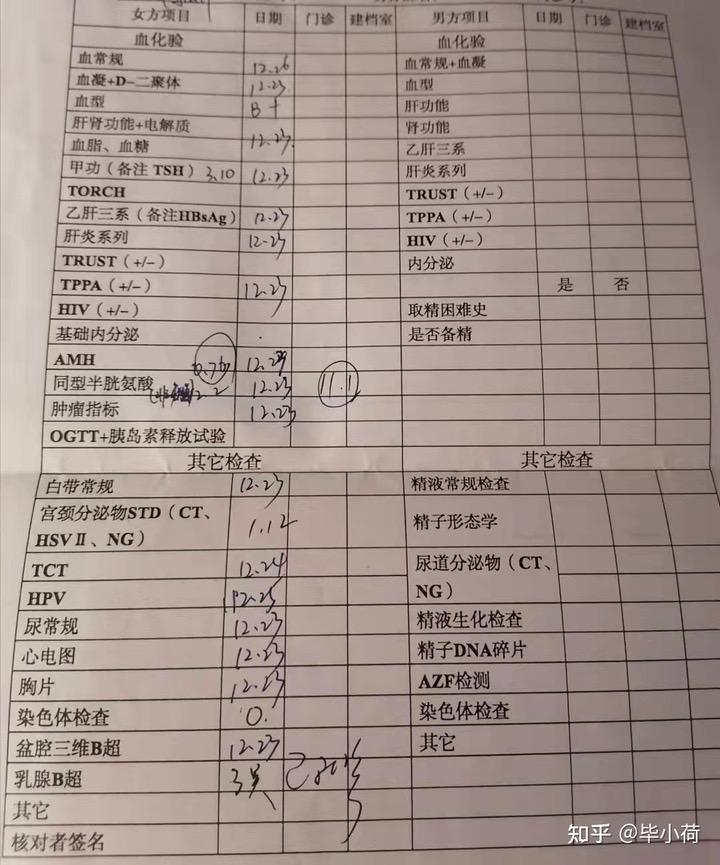 女方项目 日期 门诊 建档室 男方项目 日期 门诊 建档室
血化验 血化验
血常规 12.26 血常规+血凝
血凝+D-二聚体 12.23 血型
血型 B+ 肝功能
肝肾功能+电解质 肾功能
血脂、血糖 12.23. 乙肝三系
甲功(备注 TSH) 3.10 12.23 肝炎系列
TORCH TRUST(+/-)
乙肝三系(备注HBsAg) 12.23 TPPA(+/-)
肝炎系列 12-23 HIV(+/-)
TRUST(+/-) 内分泌
TPPA(+/-) 12.23 是 否
HIV(+/-) 取精困难史
基础内分泌 是否备精
AMH 12.29
同型半胱氨酸 12.23 11.1
肿瘤指标 12.23
OGTT+胰岛素释放试验
其它检查 其它检查
白带常规 12.23 精液常规检查
宫颈分泌物STD(CT、
HSVⅡ、NG) 1.12 精子形态学
TCT 12.24 尿道分泌物(CT、
HPV 12.25 NG)
尿常规 12.23 精液生化检查
心电图 12.23 精子DNA碎片
胸片 12.23 AZF检测
染色体检查 0. 染色体检查
盆腔三维B超 12.23 其它
乳腺B超
其它
核对者签名
知乎 @毕小荷